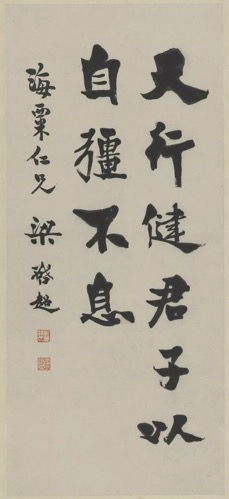 天行健君子以
自彊不息
海粟仁兄 梁啓超